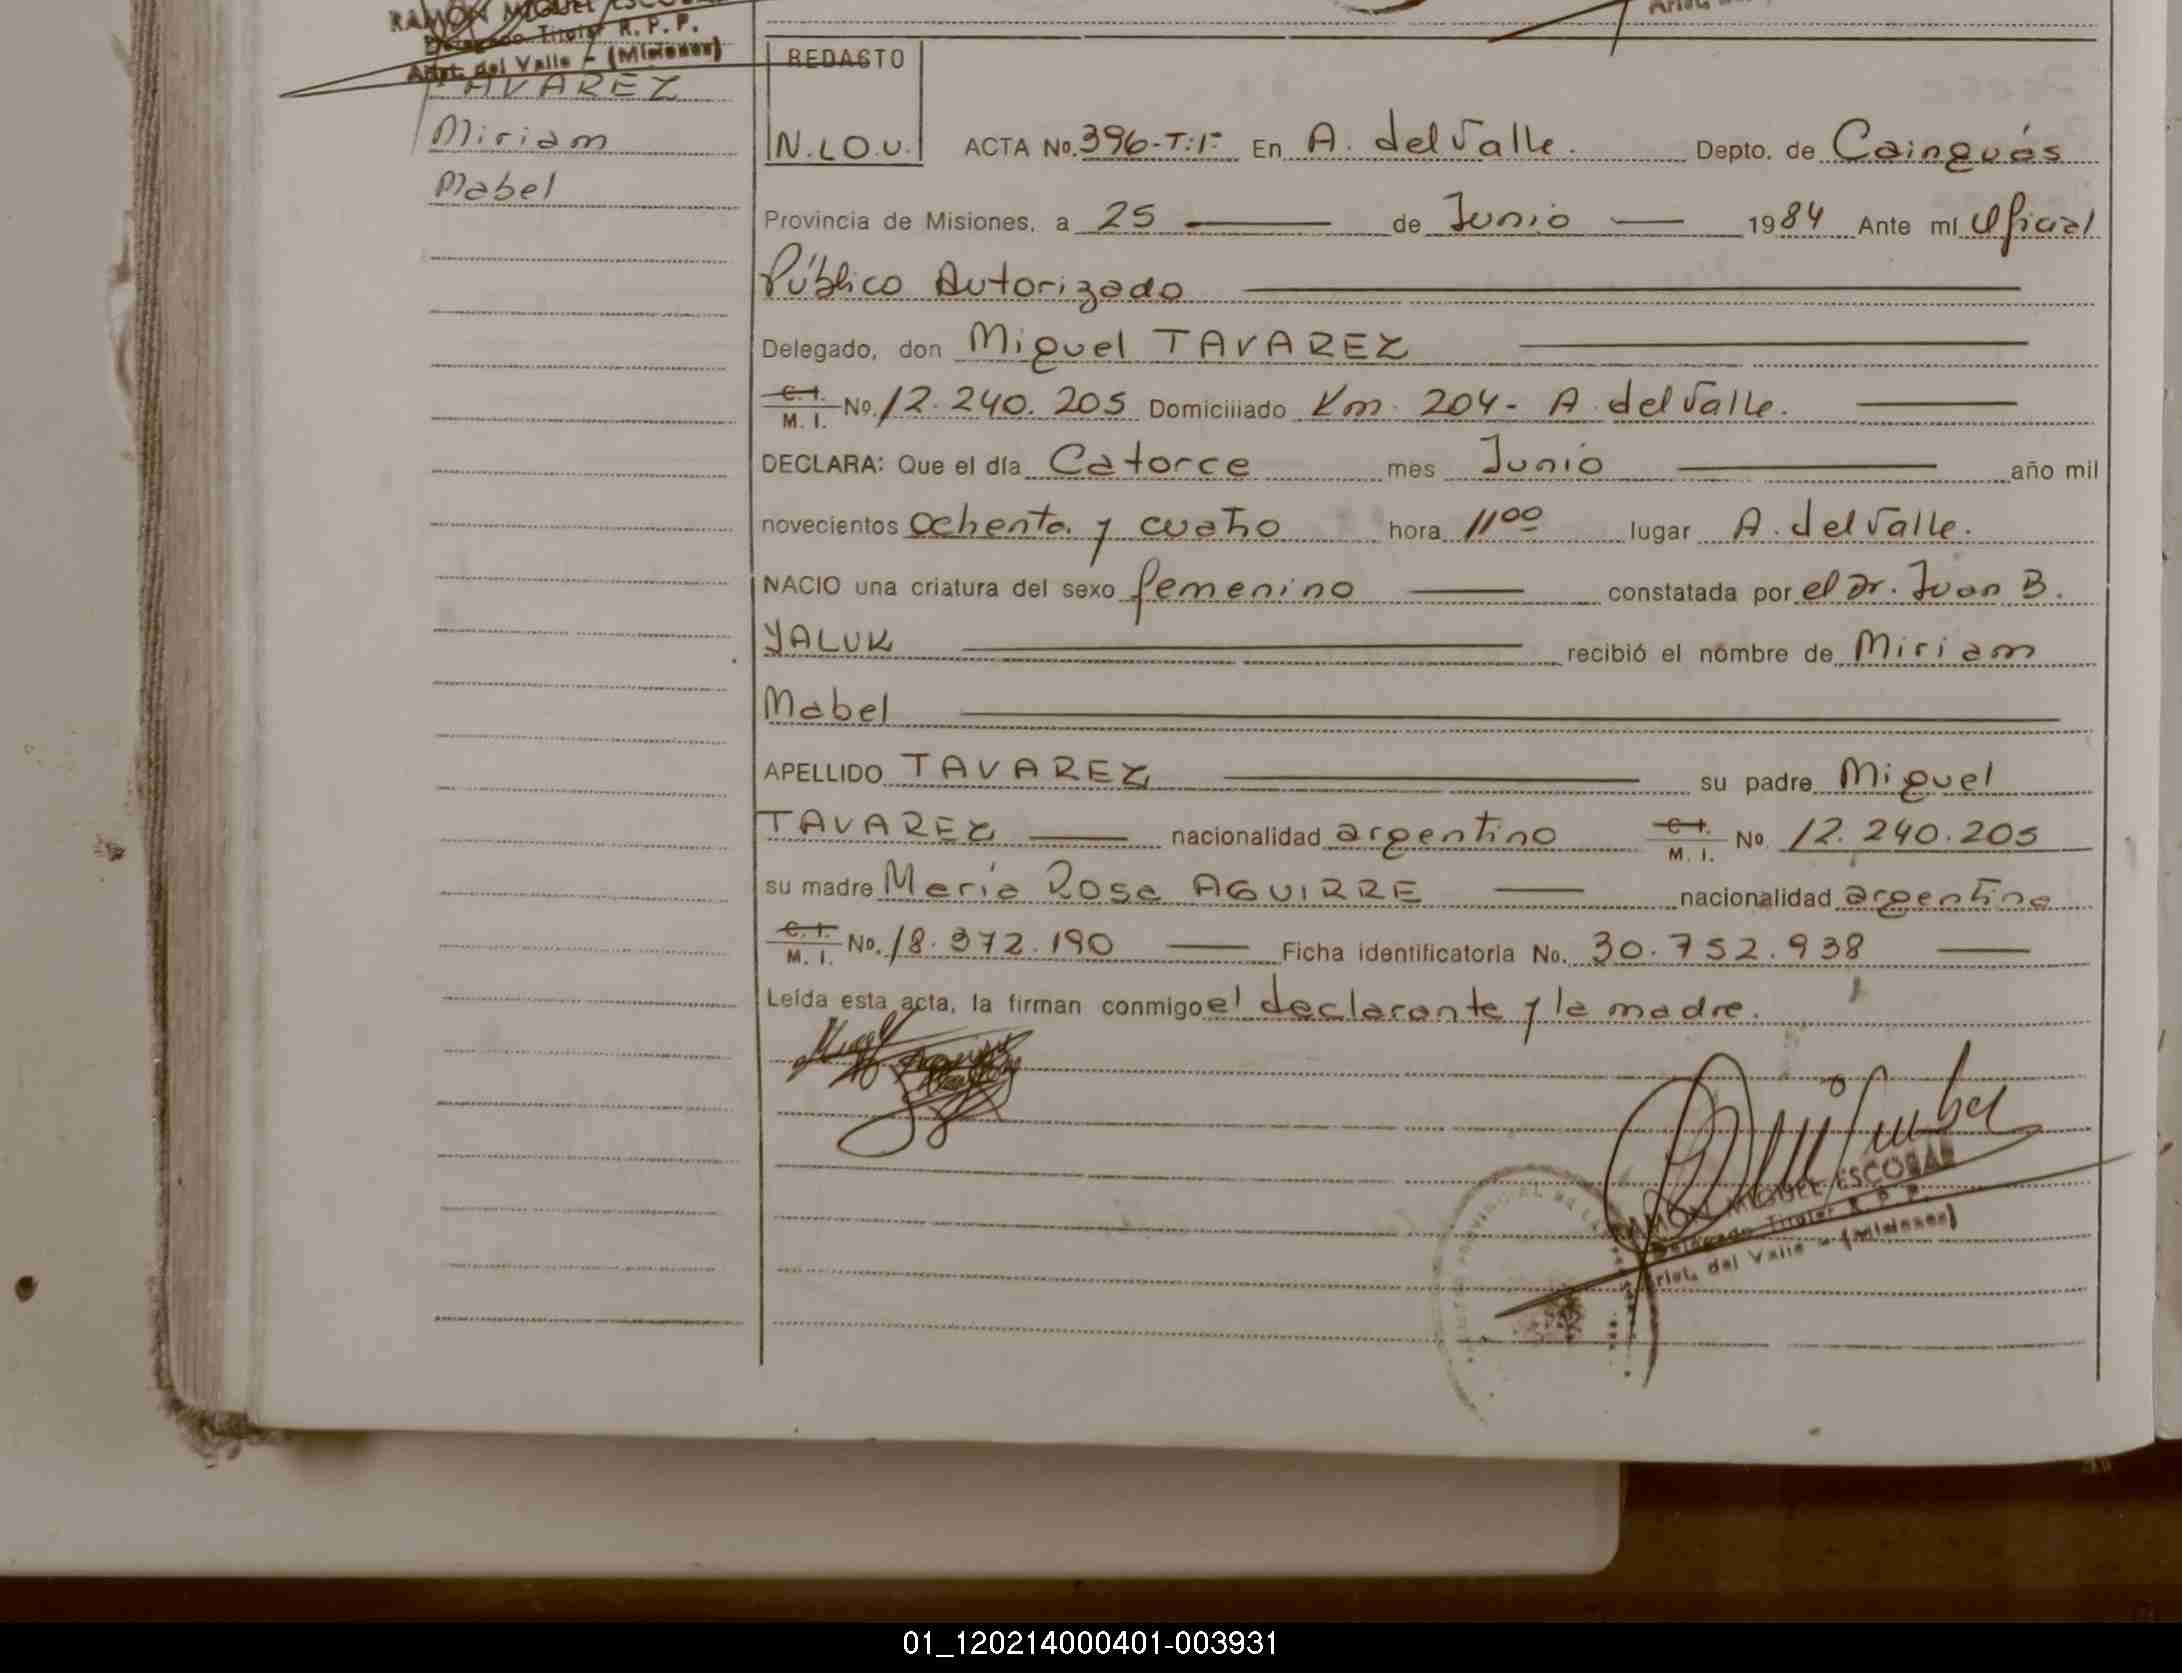 RAMÓN MIGUEL
Delegado Titular R. P. P.
Arist. del Valle - (Misiones)
TAVAREZ
Miriam
Mabel
REDACTO
N.L.O.U.
ACTA No. 396-T:1º En A. del Valle. Depto. de Cainguás
Provincia de Misiones, a 25 de Junio 1984 Ante mí Oficial
Público Autorizado
Delegado, don Miguel TAVAREZ
C. I. M. I. No. 12.240.205 Domiciliado Km. 204- A. del Valle.
DECLARA: Que el día Catorce mes Junio año mil
novecientos ochenta y cuatro hora 1100 lugar A. del Valle.
NACIO una criatura del sexo femenino constatada por el Dr. Juan B.
YALUK recibió el nombre de Miriam
Mabel
APELLIDO TAVAREZ su padre Miguel
TAVAREZ nacionalidad argentino C. I. M. I. No. 12.240.205
su madre María Rosa AGUIRRE nacionalidad argentina
C. I. M. I. No. 18.372.190 Ficha identificatoria No. 30.752.938
Leída esta acta, la firman conmigo el declarante y la madre.
RAMÓN MIGUEL ESCOBAR
Delegado Titular R. P. P.
Arist. del Valle - (Misiones)
01_120214000401-003931